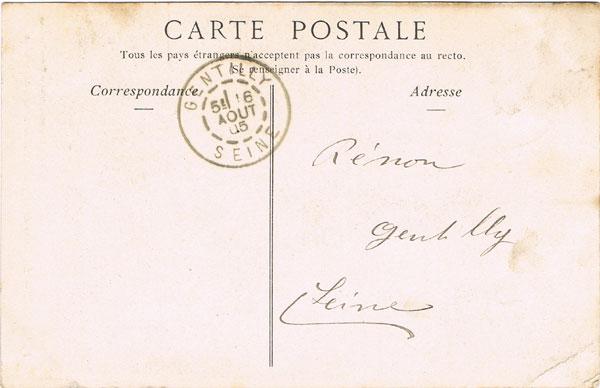 CARTE POSTALE
Tous les pays étrangers n'acceptent pas la correspondance au recto.
(Se renseigner à la Poste).
Correspondance
Adresse
GENTILLY
5E 16
AOUT
05
SEINE
Rénon
Gentilly
Seine